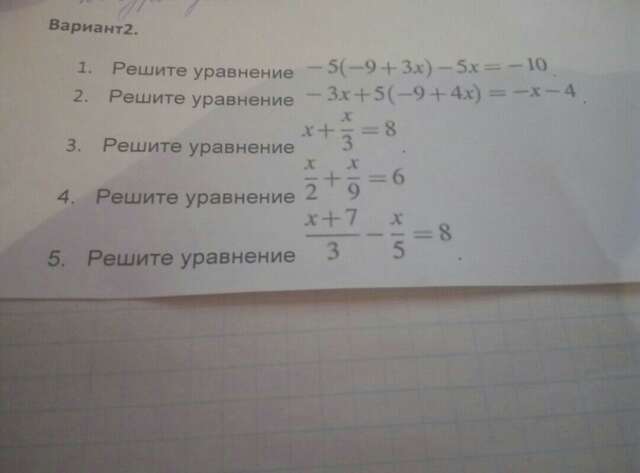 Вариант2.
1. Решите уравнение −5(−9+3x)−5x=−10.
2. Решите уравнение −3x+5(−9+4x)=−x−4.
3. Решите уравнение x+x/3=8.
4. Решите уравнение x/2+x/9=6
5. Решите уравнение (x+7)/3−x/5=8.